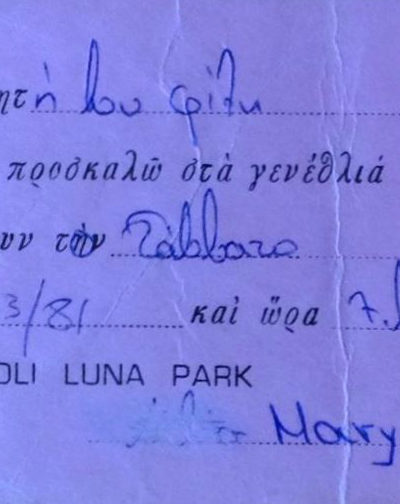 ητή μου φίλη
προσκαλῶ στὰ γενέθλιά
υν τὸν Σάββατο
3/81 καὶ ὥρα 7.
OLI LUNA PARK
Mary